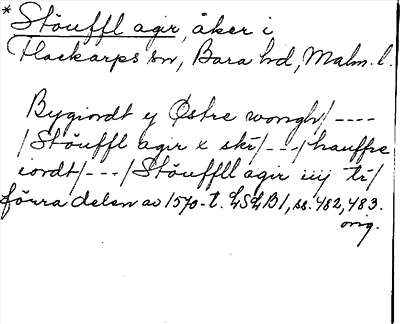 * Stöuffl agir, åker i
Flackarps sn, Bara hd, Malm. l.
Bygiordt y Østre wongh/----
/Stöuffl agir x skr/---/hauffre
iordt/---/Stöuffll agir iiij tr/
förra delen av 1570-t. LSLB1, ss. 482, 483.
orig.